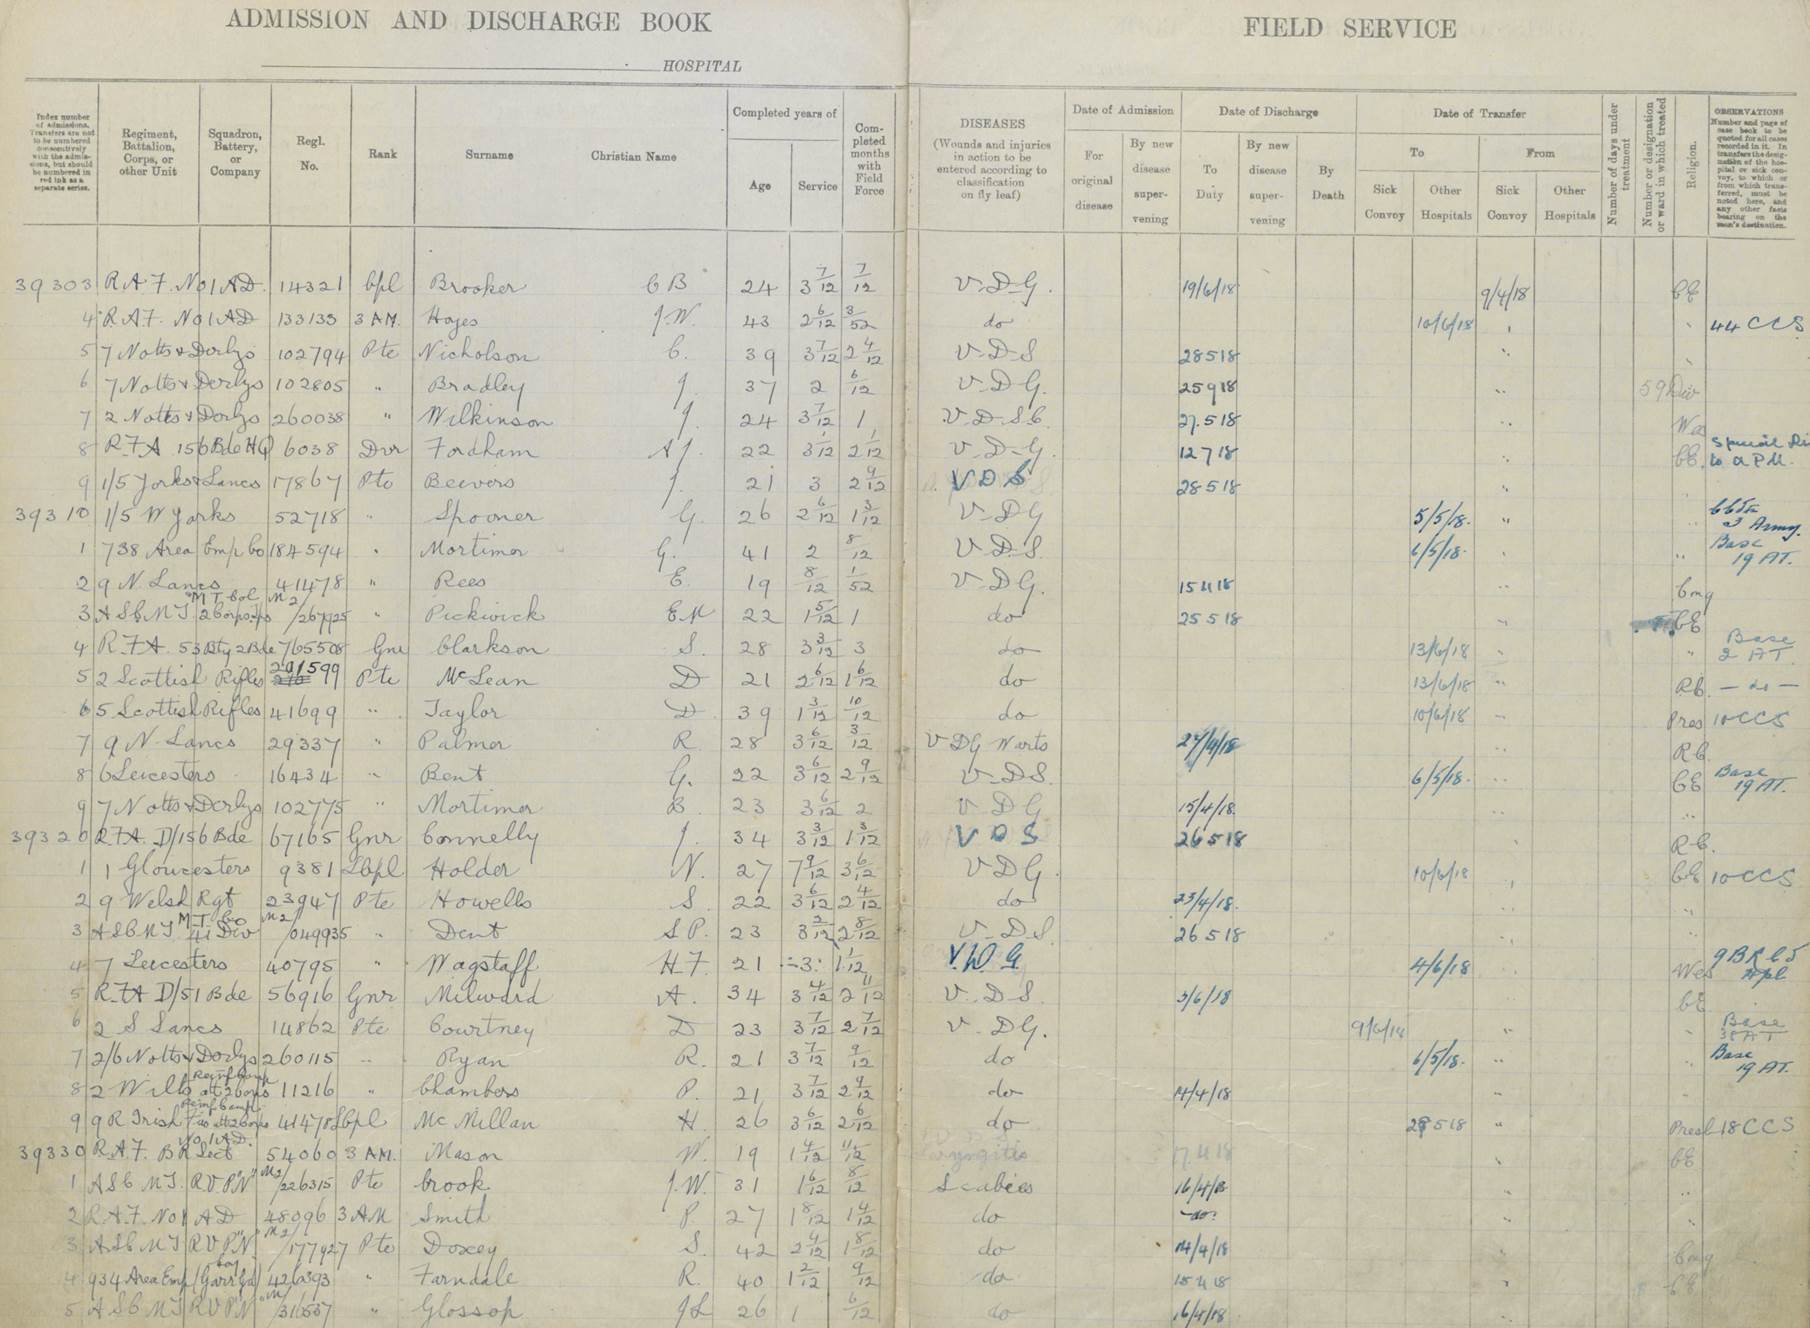 ADMISSION AND DISCHARGE BOOK FIELD SERVICE
HOSPITAL
Index number of admissions. Transfers are not to be numbered consecutively with the admissions, but should be numbered in red ink as a separate series.
Regiment, Battalion, Corps, or other Unit
Squadron, Battery, or Company
Regl. No.
Rank
Surname
Christian Name
Completed years of
Age
Service
Completed months with Field Force
DISEASES
(Wounds and injuries in action to be entered according to classification on fly leaf)
Date of Admission
For original disease
By new disease supervening
Date of Discharge
To Duty
By new disease supervening
By Death
Date of Transfer
To
Sick Convoy
Other Hospitals
From
Sick Convoy
Other Hospitals
Number of days under treatment
Number or designation or ward in which treated
Religion.
OBSERVATIONS
Number and page of case book to be quoted for all cases recorded in it. In transfers the designation of the hospital or sick convoy, to which or from which transferred, must be noted here, and any other facts bearing on the man's destination.
39303 R.A.F. No1 A.D. 14321 Cpl Brooker C B 24 3 7/12 7/12 V-D-G. 19/6/18 9/4/18 CE
4 R.A.F. No 1 AD 133133 3 A.M. Hayes J.W. 43 2 6/12 3/52 do 10/6/18 44 CCS
5 7 Notts & Derbys 102794 Pte Nicholson C. 39 3 7/12 2 4/12 V-D-S 28 5 18
6 7 Notts & Derbys 102805 " Bradley J. 37 2 6/12 V-D-G. 25 9 18 59 Div
7 2 Notts & Derbys 260038 " Wilkinson J. 24 3 7/12 1 V-D-S.C. 27.5 18 Wes
8 R.F.A 156 Bde HQ 6038 Dvr Fordham A J. 22 3 1/12 2 1/12 V-D-G. 12 7 18 CE. Special to A P M.
9 1/5 Yorks & Lancs 17867 Pte Beevors J. 21 3 2 9/12 V D S 28 5 18
39310 1/5 W Yorks 52718 " Spooner G. 26 2 6/12 1 3/12 V-D G 5/5/18. " 3 Army.
1 738 Area Emp Co 184594 " Mortimer G. 41 2 8/12 V-D-S. 6/5/18. Base 19 AT.
2 9 N. Lancs 41478 " Rees E. 19 8/12 1/52 V-D G. 15 4 18 Cong
3 A S C M T. M T Col 2 Corps M2/267925 " Pickwick E M 22 1 5/12 1 do 25 5 18 CE
4 R.F.A. 53 Bty 2 Bde 765508 Gnr Clarkson S. 28 3 3/12 3 do 13/6/18 " Base 2 AT
5 2 Scottish Rifles 291599 Pte McLean D 21 2 6/12 1 6/12 do 13/6/18 R.C. - do -
6 5 Scottish Rifles 41699 " Taylor D 39 1 3/12 10/12 do 10/6/18 Pres 10 CCS
7 9 N. Lancs 29337 " Palmer R. 28 3 6/12 3/12 V DG Warts 24/4/18 R.C.
8 6 Leicesters 16434 " Bent G. 22 3 6/12 2 9/12 V-D S. 6/5/18. CE Base 19 AT.
9 7 Notts & Derbys 102775 " Mortimer B. 23 3 6/12 2 V D G 15/4/18.
39320 R.F.A. D/156 Bde 67165 Gnr Connelly J. 34 3 3/12 1 3/12 V D S 26 5 18 R.C.
1 1 Gloucesters 9381 LCpl Holder N. 27 7 9/12 3 6/12 V-D G. 10/6/18 CE 10 CCS
2 9 Welsh Rgt 23947 Pte Howells S. 22 3 6/12 2 4/12 do 23/4/18.
3 A S C M T M T Co 41 Div M2/049935 " Dent S P. 23 3 2/12 2 8/12 V-D-S. 26 5 18
4 7 Leicesters 40795 " Wagstaff H.F. 21 3 1 1/12 V.D.G 4/6/18 Wes
5 R.F.A D/51 Bde 56916 Gnr Milward A. 34 3 4/12 2 11/12 V-D-S. 3/6/18 CE
6 2 S Lancs 14862 Pte Courtney D 23 3 7/12 2 7/12 V-D G. 9/6/18 " Base 38 AT
7 2/6 Notts & Derbys 260115 " Ryan R. 21 3 7/12 9/12 do 6/5/18. " Base 19 AT.
8 2 Wilts att 2 Corps Reinf Camp 11216 " Chambers P. 21 3 7/12 2 9/12 do 14/4/18
9 9 R Irish Fus att 2 Corps Reinf Camp 41478 LCpl McMillan H. 26 3 6/12 2 6/12 do 28 5 18 " Presb 18 CCS
39330 R.A.F. No 1 A.D. 54060 3 A.M. Mason W. 19 1 4/12 11/12 17 4 18 CE
1 A S C M.T. R V P "N" M2/226315 Pte Crook J.W. 31 1 6/12 8/12 Scabies 16/4/18
2 R.A.F. No 1 A D 48096 3 A M Smith P. 27 1 8/12 1 4/12 do - do -
3 A S C M T R V P "N" M2/177927 Pte Doxey S. 42 2 4/12 1 8/12 do 14/4/18 Cong
4 934 Area Emp (Garr Gd) Coy 426393 " Farndale R. 40 1 2/12 9/12 do 15 4 18 CE
5 A S C M T R V P "N" M/316537 " Glossop J L 26 1 6/12 do 16/4/18